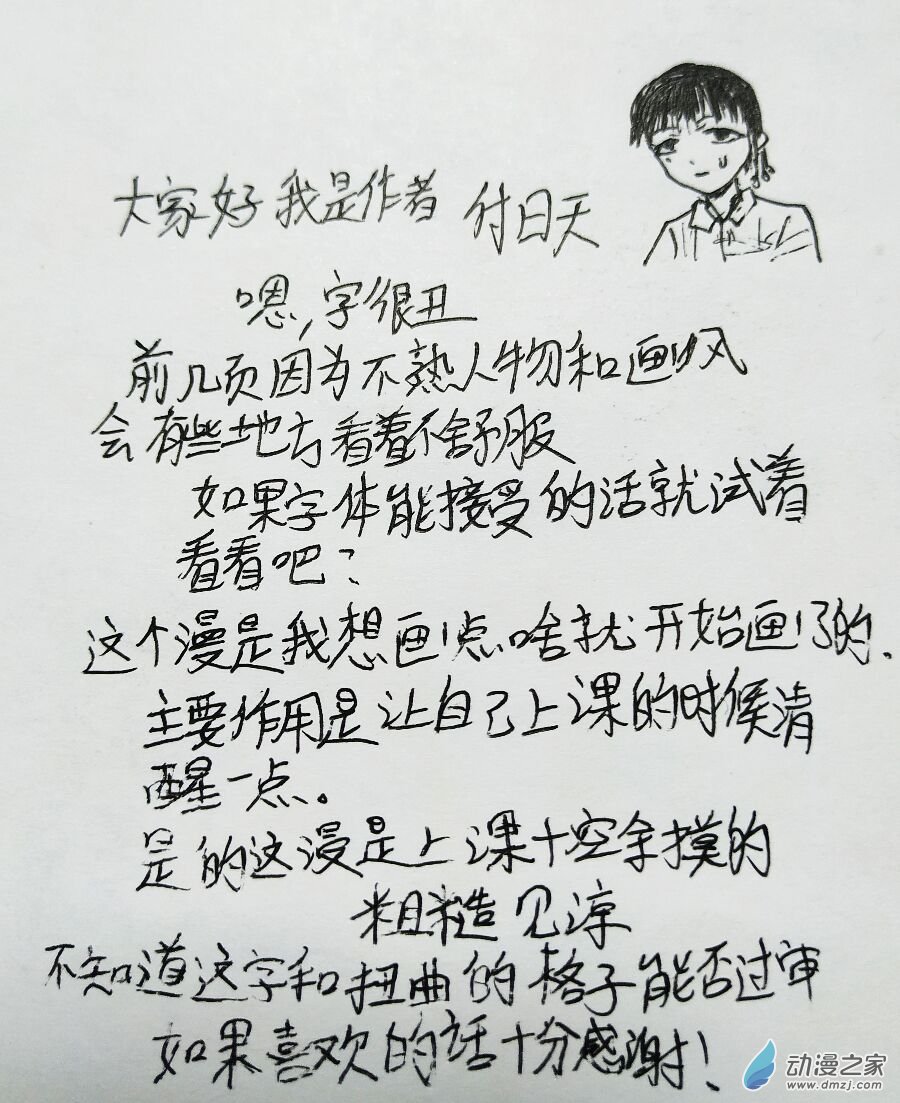 大家好 我是作者 付日天
嗯,字很丑
前几页因为不熟人物和画风
会有些地方看着不舒服
如果字体能接受的话就试着
看看吧?
这个漫是我想画点啥就开始画了的.
主要作用是让自己上课的时候清
醒一点。
是的这漫是上课+空余摸的
粗糙见凉
不知道这字和扭曲的格子能否过审
如果喜欢的話十分感谢!
动漫之家
www.dmzj.com